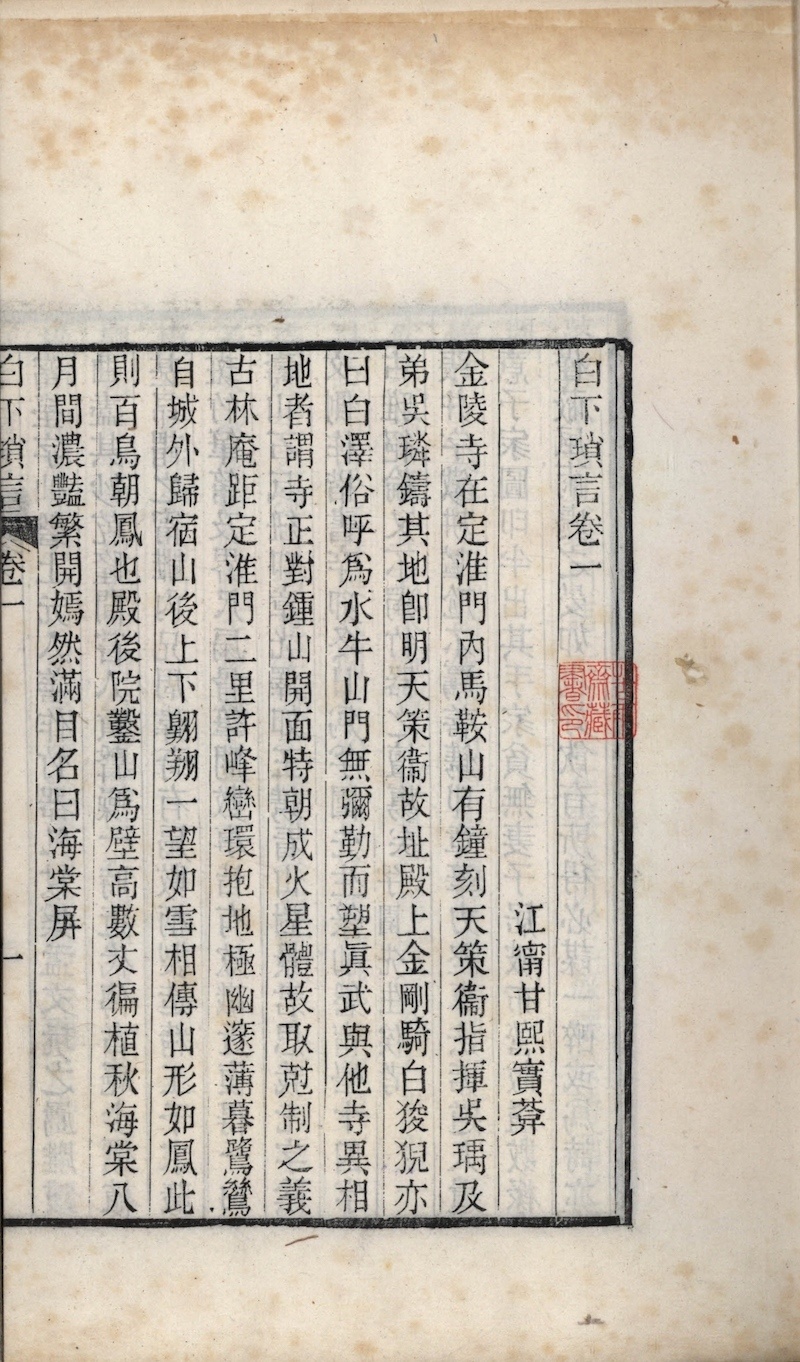 白下瑣言卷一
江甯甘熙實菴
金陵寺在定淮門內馬鞍山有鐘刻天策衞指揮吳瑀及
弟吳璘鑄其地卽明天策衞故址殿上金剛騎白狻猊亦
曰白澤俗呼爲水牛山門無彌勒而塑眞武與他寺異相
地者謂寺正對鍾山開面特朝成火星體故取尅制之義
古林庵距定淮門二里許峰巒環抱地極幽邃薄暮鷺鷥
自城外歸宿山後上下翱翔一望如雪相傳山形如鳳此
則百鳥朝鳳也殿後院鑿山爲壁高數丈徧植秋海棠八
月間濃豔繁開嫣然滿目名曰海棠屏
白下瑣言 卷一 一